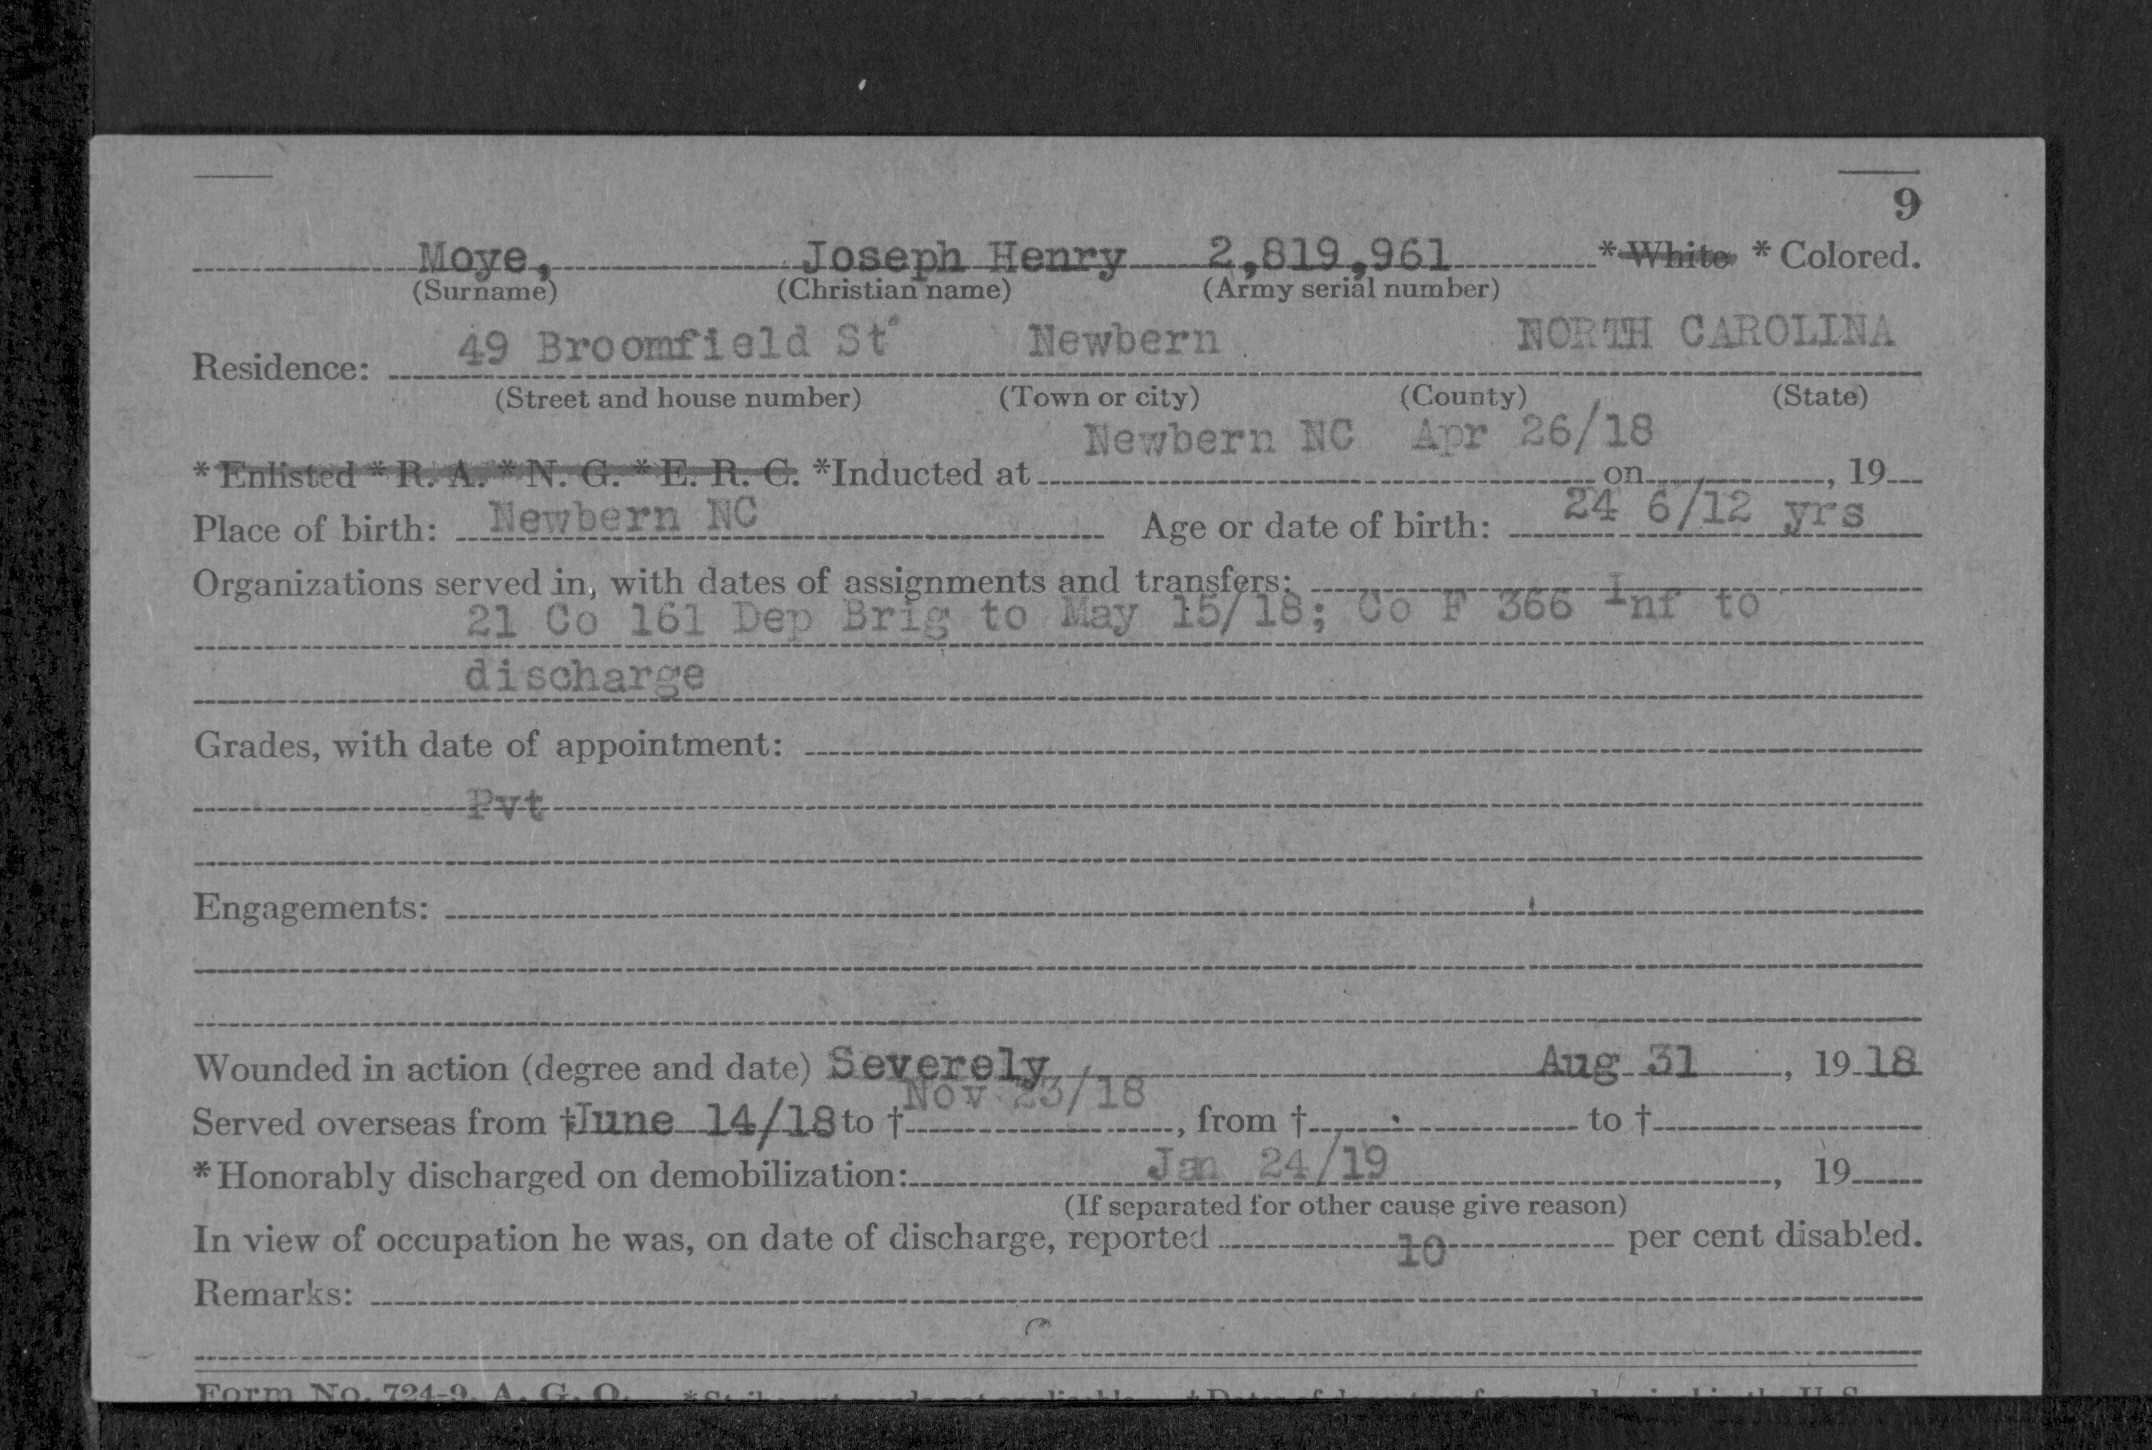 9
Moye, Joseph Henry 2,819,961 *White *Colored.
(Surname) (Christian name) (Army serial number)
49 Broomfield St Newbern NORTH CAROLINA
Residence:
(Street and house number) (Town or city) (County) (State)
Newbern NC Apr 26/18
*Enlisted *R. A. *N. G. *E. R. C. *Inducted at on , 19
Place of birth: Newbern NC Age or date of birth: 24 6/12 yrs
Organizations served in, with dates of assignments and transfers:
21 Co 161 Dep Brig to May 15/18; Co F 366 Inf to
discharge
Grades, with date of appointment:
Pvt
Engagements:
Wounded in action (degree and date) Severely Aug 31, 1918
Nov 23/18
Served overseas from †June 14/18 to † , from † to †
*Honorably discharged on demobilization: Jan 24/19 , 19
(If separated for other cause give reason)
In view of occupation he was, on date of discharge, reported 10 per cent disabled.
Remarks:
Form No. 724-9, A. G. O.